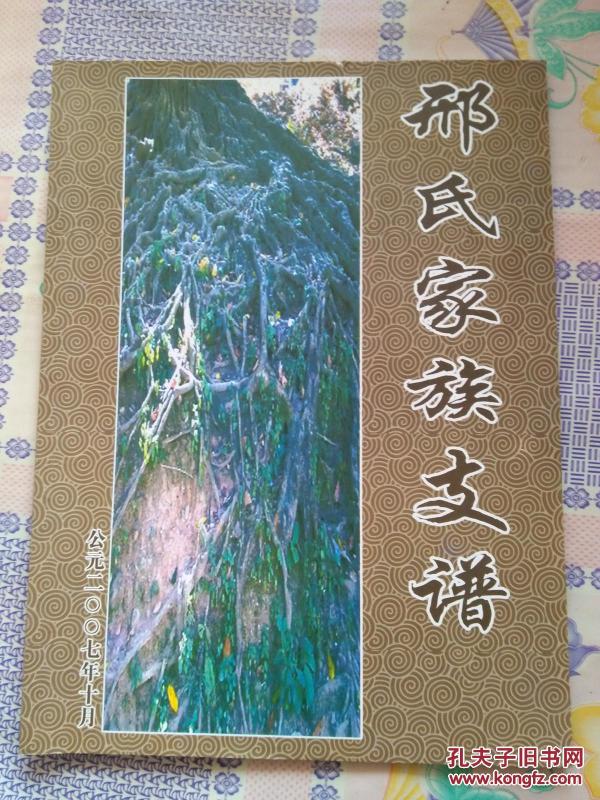 邢氏家族支谱
公元二〇〇七年十月
孔夫子旧书网
www.kongfz.com